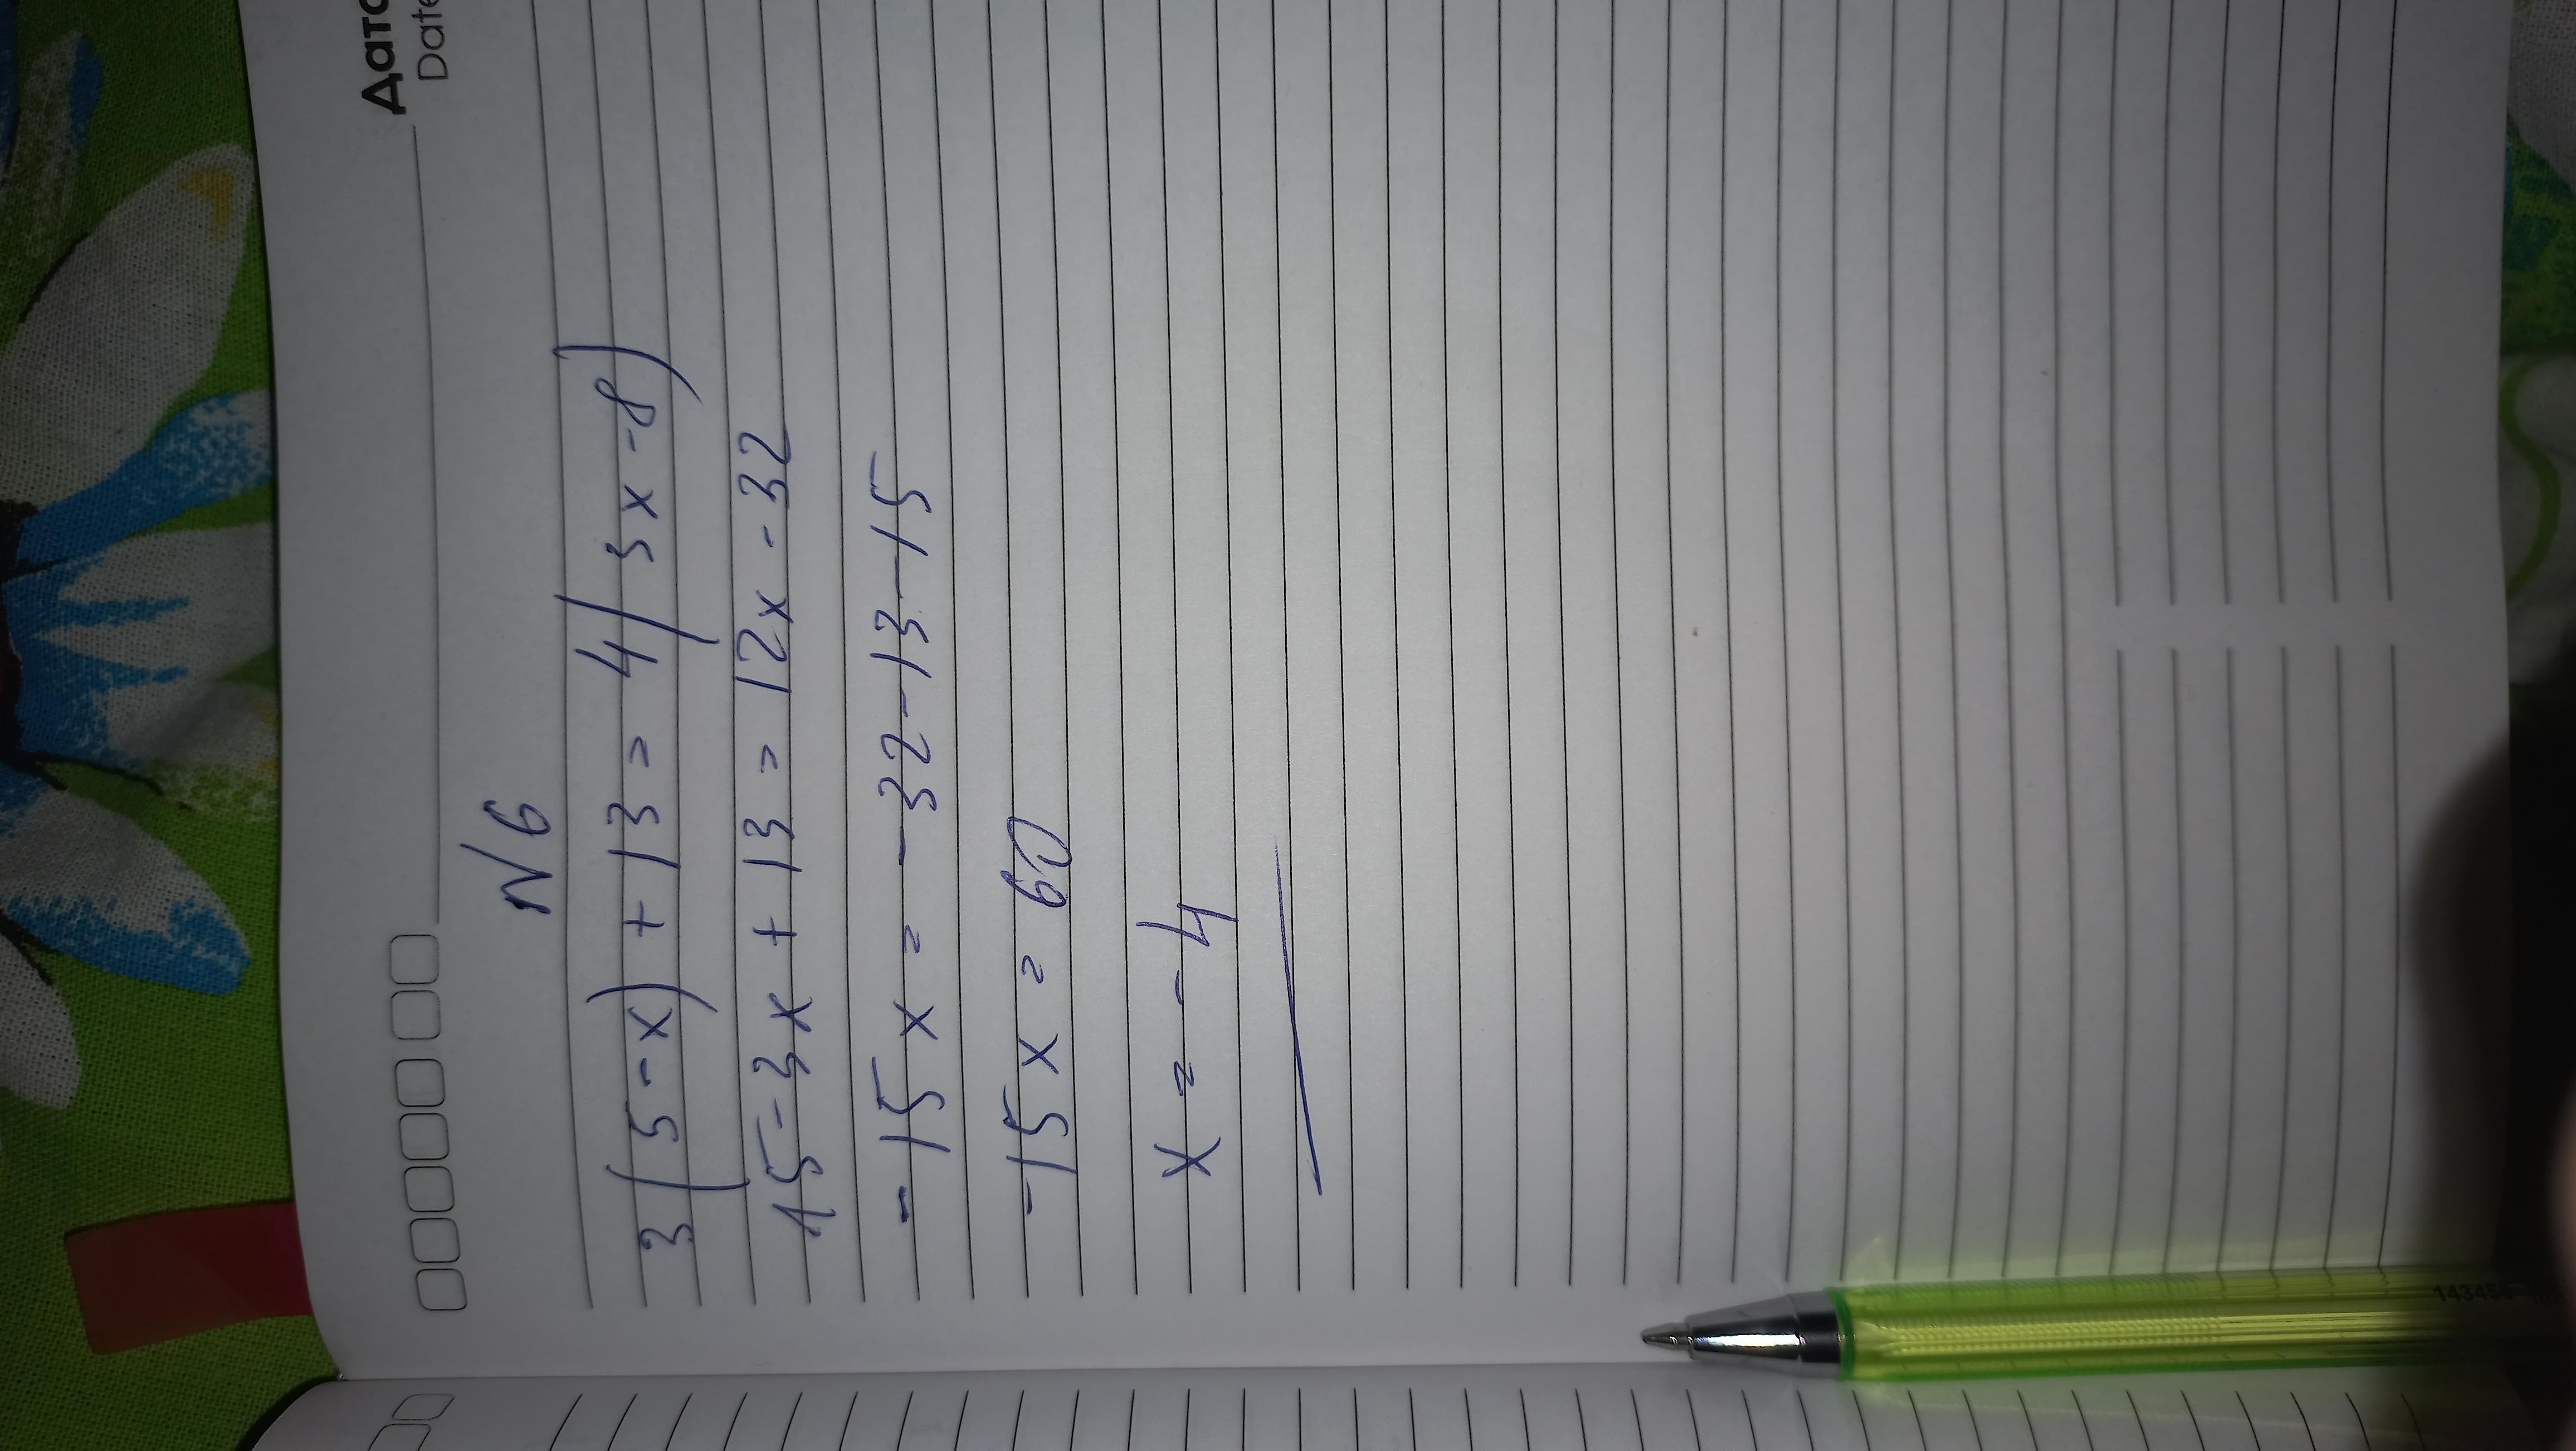 Дата
Date
N6
3(5-x)+13=4(3x-8)
15-3x+13=12x-32
-15x=-32-13-15
-15x=60
x=-4